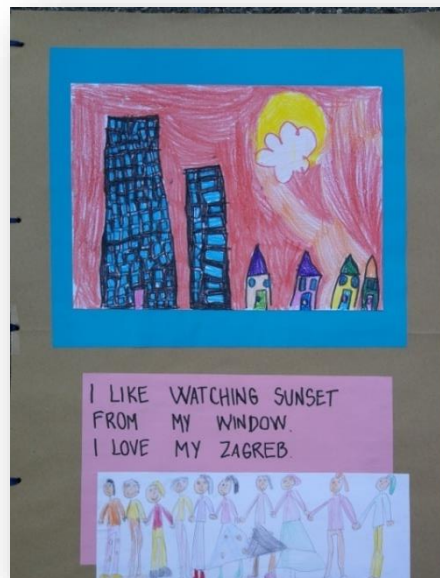 I LIKE WATCHING SUNSET
FROM MY WINDOW.
I LOVE MY ZAGREB.